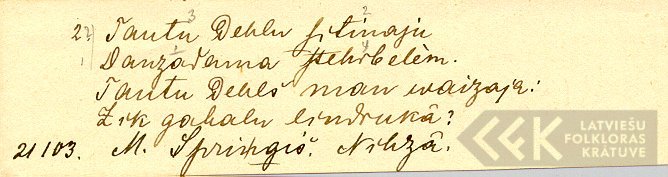 2. Tautu Dehlu sitinaju
Danzadama stehrbelèm.
Tautu Dehls man waizaja:
Zik gabalu lindrukâ?
21103. M. Spriņgis. Nihzâ.
LATVIEŠU
FOLKLORAS
KRĀTUVE